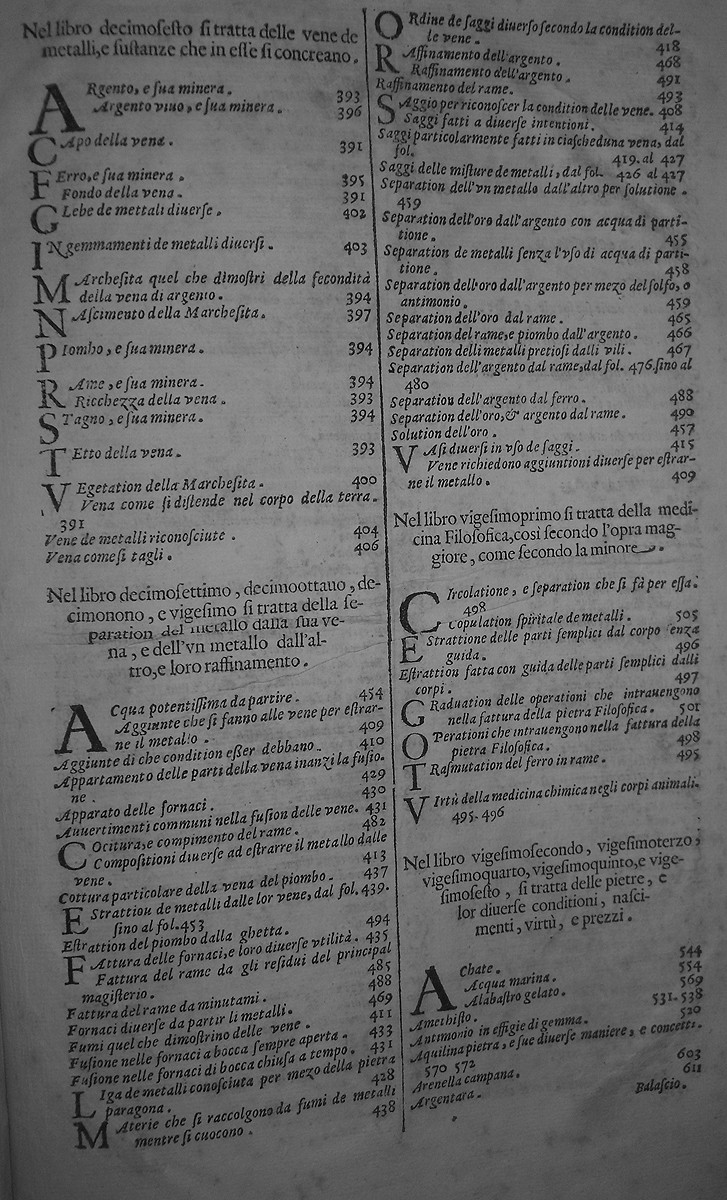 Nel libro decimoſeſto ſi tratta delle vene de
metalli, e ſuſtanze che in eſſe ſi concreano.
ARgento, e ſua minera. 393
Argento viuo, e ſua minera. 396
CApo della vena. 391
FErro, e ſua minera. 395
Fondo della vena. 391
GLebe de mettali diuerſe. 402
INgemmamenti de metalli diuerſi. 403
MArcheſita quel che dimoſtri della fecondità
della vena di argento. 394
NAſcimento della Marcheſita. 397
PIombo, e ſua minera. 394
RAme, e ſua minera. 394
Ricchezza della vena. 393
STagno, e ſua minera. 394
TEtto della vena. 393
VEgetation della Marcheſita. 400
Vena come ſi diſtende nel corpo della terra.
391
Vene de metalli riconoſciute. 404
Vena come ſi tagli. 406
Nel libro decimoſettimo, decimoottauo, de-
cimonono, e vigeſimo ſi tratta della ſe-
paration del metallo dalla ſua ve-
na, e dell'vn metallo dall'al-
tro, e loro raffinamento.
ACqua potentiſſima da partire. 454
Aggiunte che ſi fanno alle vene per eſtrar-
ne il metallo. 409
Aggiunte di che condition eßer debbano. 410
Appartamento delle parti della vena inanzi la fuſio-
ne. 429
Apparato delle fornaci. 430
Auuertimenti communi nella fuſion delle vene. 431
COcitura, e compimento del rame. 482
Compoſitioni diuerſe ad eſtrarre il metallo dalle
vene. 413
Cottura particolare della vena del piombo. 437
EStrattiou de metalli dalle lor vene, dal fol. 439.
ſino al fol. 453
Eſtrattion del piombo dalla ghetta. 494
FAttura delle fornaci, e loro diuerſe vtilità. 435
Fattura del rame da gli reſidui del principal
magiſterio. 485
Fattura del rame da minutami. 488
Fornaci diuerſe da partir li metalli. 469
Fumi quel che dimoſtrino delle vene. 411
Fuſione nelle fornaci a bocca ſempre aperta. 433
Fuſione nelle fornaci di bocca chiuſa a tempo. 431
LIga de metalli conoſciuta per mezo della pietra
paragona. 428
MAterie che ſi raccolgono da fumi de metalli
mentre ſi cuocono. 438
ORdine de ſaggi diuerſo ſecondo la condition del-
le vene. 418
RAffinamento dell'argento. 468
Raffinamento dell'argento. 491
Raffinamento del rame. 493
SAggio per riconoſcer la condition delle vene. 408
Saggi fatti a diuerſe intentioni. 414
Saggi particolarmente fatti in ciaſcheduna vena, dal
fol. 419. al 427
Saggi delle miſture de metalli, dal fol. 426 al 427
Separation dell'vn metallo dall'altro per ſolutione.
459
Separation dell'oro dall'argento con acqua di parti-
tione. 455
Separation de metalli ſenza l'vſo di acqua di parti-
tione. 458
Separation dell'oro dall'argento per mezo del ſolfo, o
antimonio. 459
Separation dell'oro dal rame. 465
Separation del rame, e piombo dall'argento. 466
Separation delli metalli pretioſi dalli vili. 467
Separation dell'argento dal rame, dal fol. 476. ſino al
480
Separation dell'argento dal ferro. 488
Separation dell'oro, & argento dal rame. 490
Solution dell'oro. 457
VAſi diuerſi in vſo de ſaggi. 415
Vene richiedono aggiuntioni diuerſe per eſtrar-
ne il metallo. 409
Nel libro vigeſimoprimo ſi tratta della medi-
cina Filoſofica, coſì ſecondo l'opra mag-
giore, come ſecondo la minore.
CIrcolatione, e ſeparation che ſi fà per eſſa.
498
Copulation ſpiritale de metalli. 505
EStrattione delle parti ſemplici dal corpo ſenza
guida. 496
Eſtrattion fatta con guida delle parti ſemplici dalli
corpi. 497
GRaduation delle operationi che intrauengono
nella fattura della pietra Filoſofica. 501
OPerationi che intrauengono nella fattura della
pietra Filoſofica. 498
TRaſmutation del ferro in rame. 495
VIrtù della medicina chimica negli corpi animali.
495-496
Nel libro vigeſimoſecondo, vigeſimoterzo,
vigeſimoquarto, vigeſimoquinto, e vige-
ſimoſeſto, ſi tratta delle pietre, e
lor diuerſe conditioni, naſci-
menti, virtù, e prezzi.
AChate. 544
Acqua marina. 554
Alabaſtro gelato. 569
Amethiſto. 531-538
Antimonio in effigie di gemma. 520
Aquilina pietra, e ſue diuerſe maniere, e concetti.
570 572
Arenella campana. 603
Argentara. 611
Balaſcio.